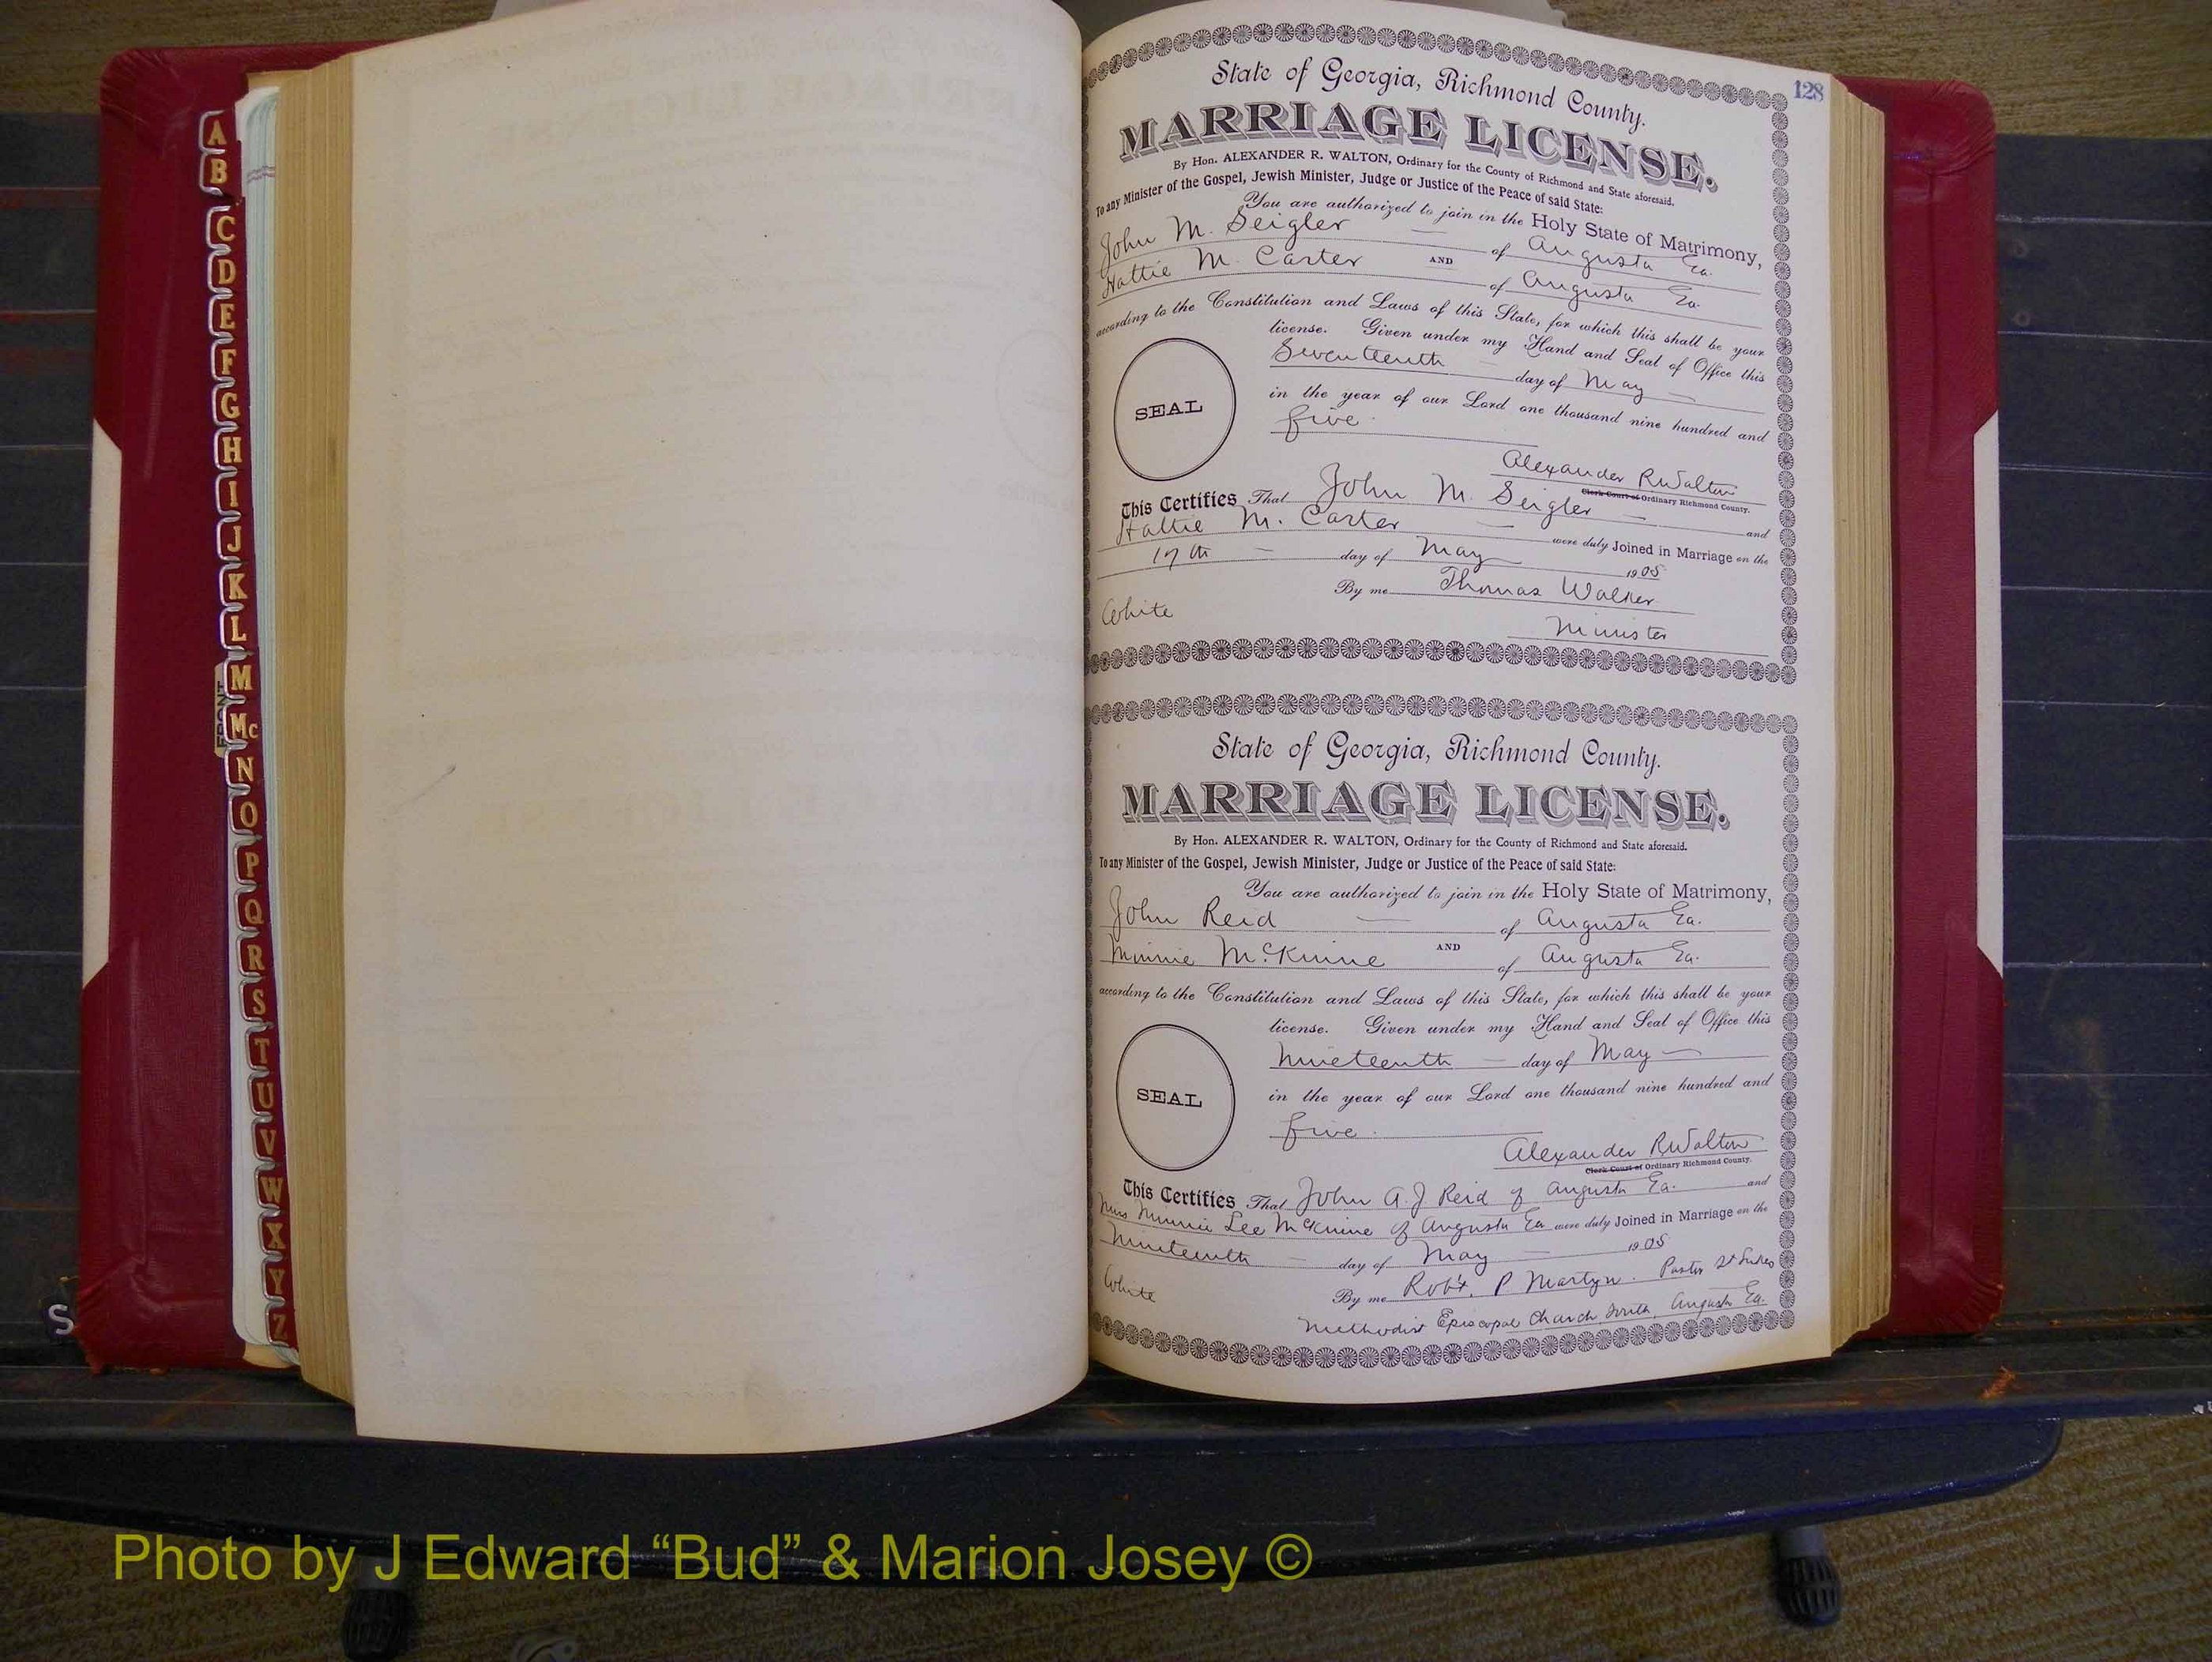 A
B
C
D
E
F
G
H
I
J
K
L
M
FRONT
Mc
N
O
P
Q
R
S
T
U
V
W
X
Y
Z
S
128
State of Georgia, Richmond County.
MARRIAGE LICENSE.
By Hon. ALEXANDER R. WALTON, Ordinary for the County of Richmond and State aforesaid.
To any Minister of the Gospel, Jewish Minister, Judge or Justice of the Peace of said State:
You are authorized to join in the Holy State of Matrimony,
John M. Seigler — of Augusta Ga.
AND
Hattie M. Carter of Augusta Ga.
according to the Constitution and Laws of this State, for which this shall be your
license. Given under my Hand and Seal of Office this
Seventeenth — day of May —
in the year of our Lord one thousand nine hundred and
SEAL
five.
Alexander R Walton
Clerk Court of Ordinary Richmond County.
This Certifies That John M. Seigler — and
Hattie M. Carter — were duly Joined in Marriage on the
17th — day of May 1905
By me Thomas Walker
White
Minister
State of Georgia, Richmond County.
MARRIAGE LICENSE.
By Hon. ALEXANDER R. WALTON, Ordinary for the County of Richmond and State aforesaid.
To any Minister of the Gospel, Jewish Minister, Judge or Justice of the Peace of said State:
You are authorized to join in the Holy State of Matrimony,
John Reid — of Augusta Ga.
AND
Minnie McKinne of Augusta Ga.
according to the Constitution and Laws of this State, for which this shall be your
license. Given under my Hand and Seal of Office this
Nineteenth — day of May —
in the year of our Lord one thousand nine hundred and
SEAL
five.
Alexander R Walton
Clerk Court of Ordinary Richmond County.
This Certifies That John A. J Reid of Augusta Ga. and
Miss Minnie Lee McKinne of Augusta Ga were duly Joined in Marriage on the
Nineteenth — day of May — 1905
By me Robt. P Martyn. Pastor St Lukes
White
Methodist Episcopal Church South, Augusta Ga.
Photo by J Edward “Bud” & Marion Josey ©